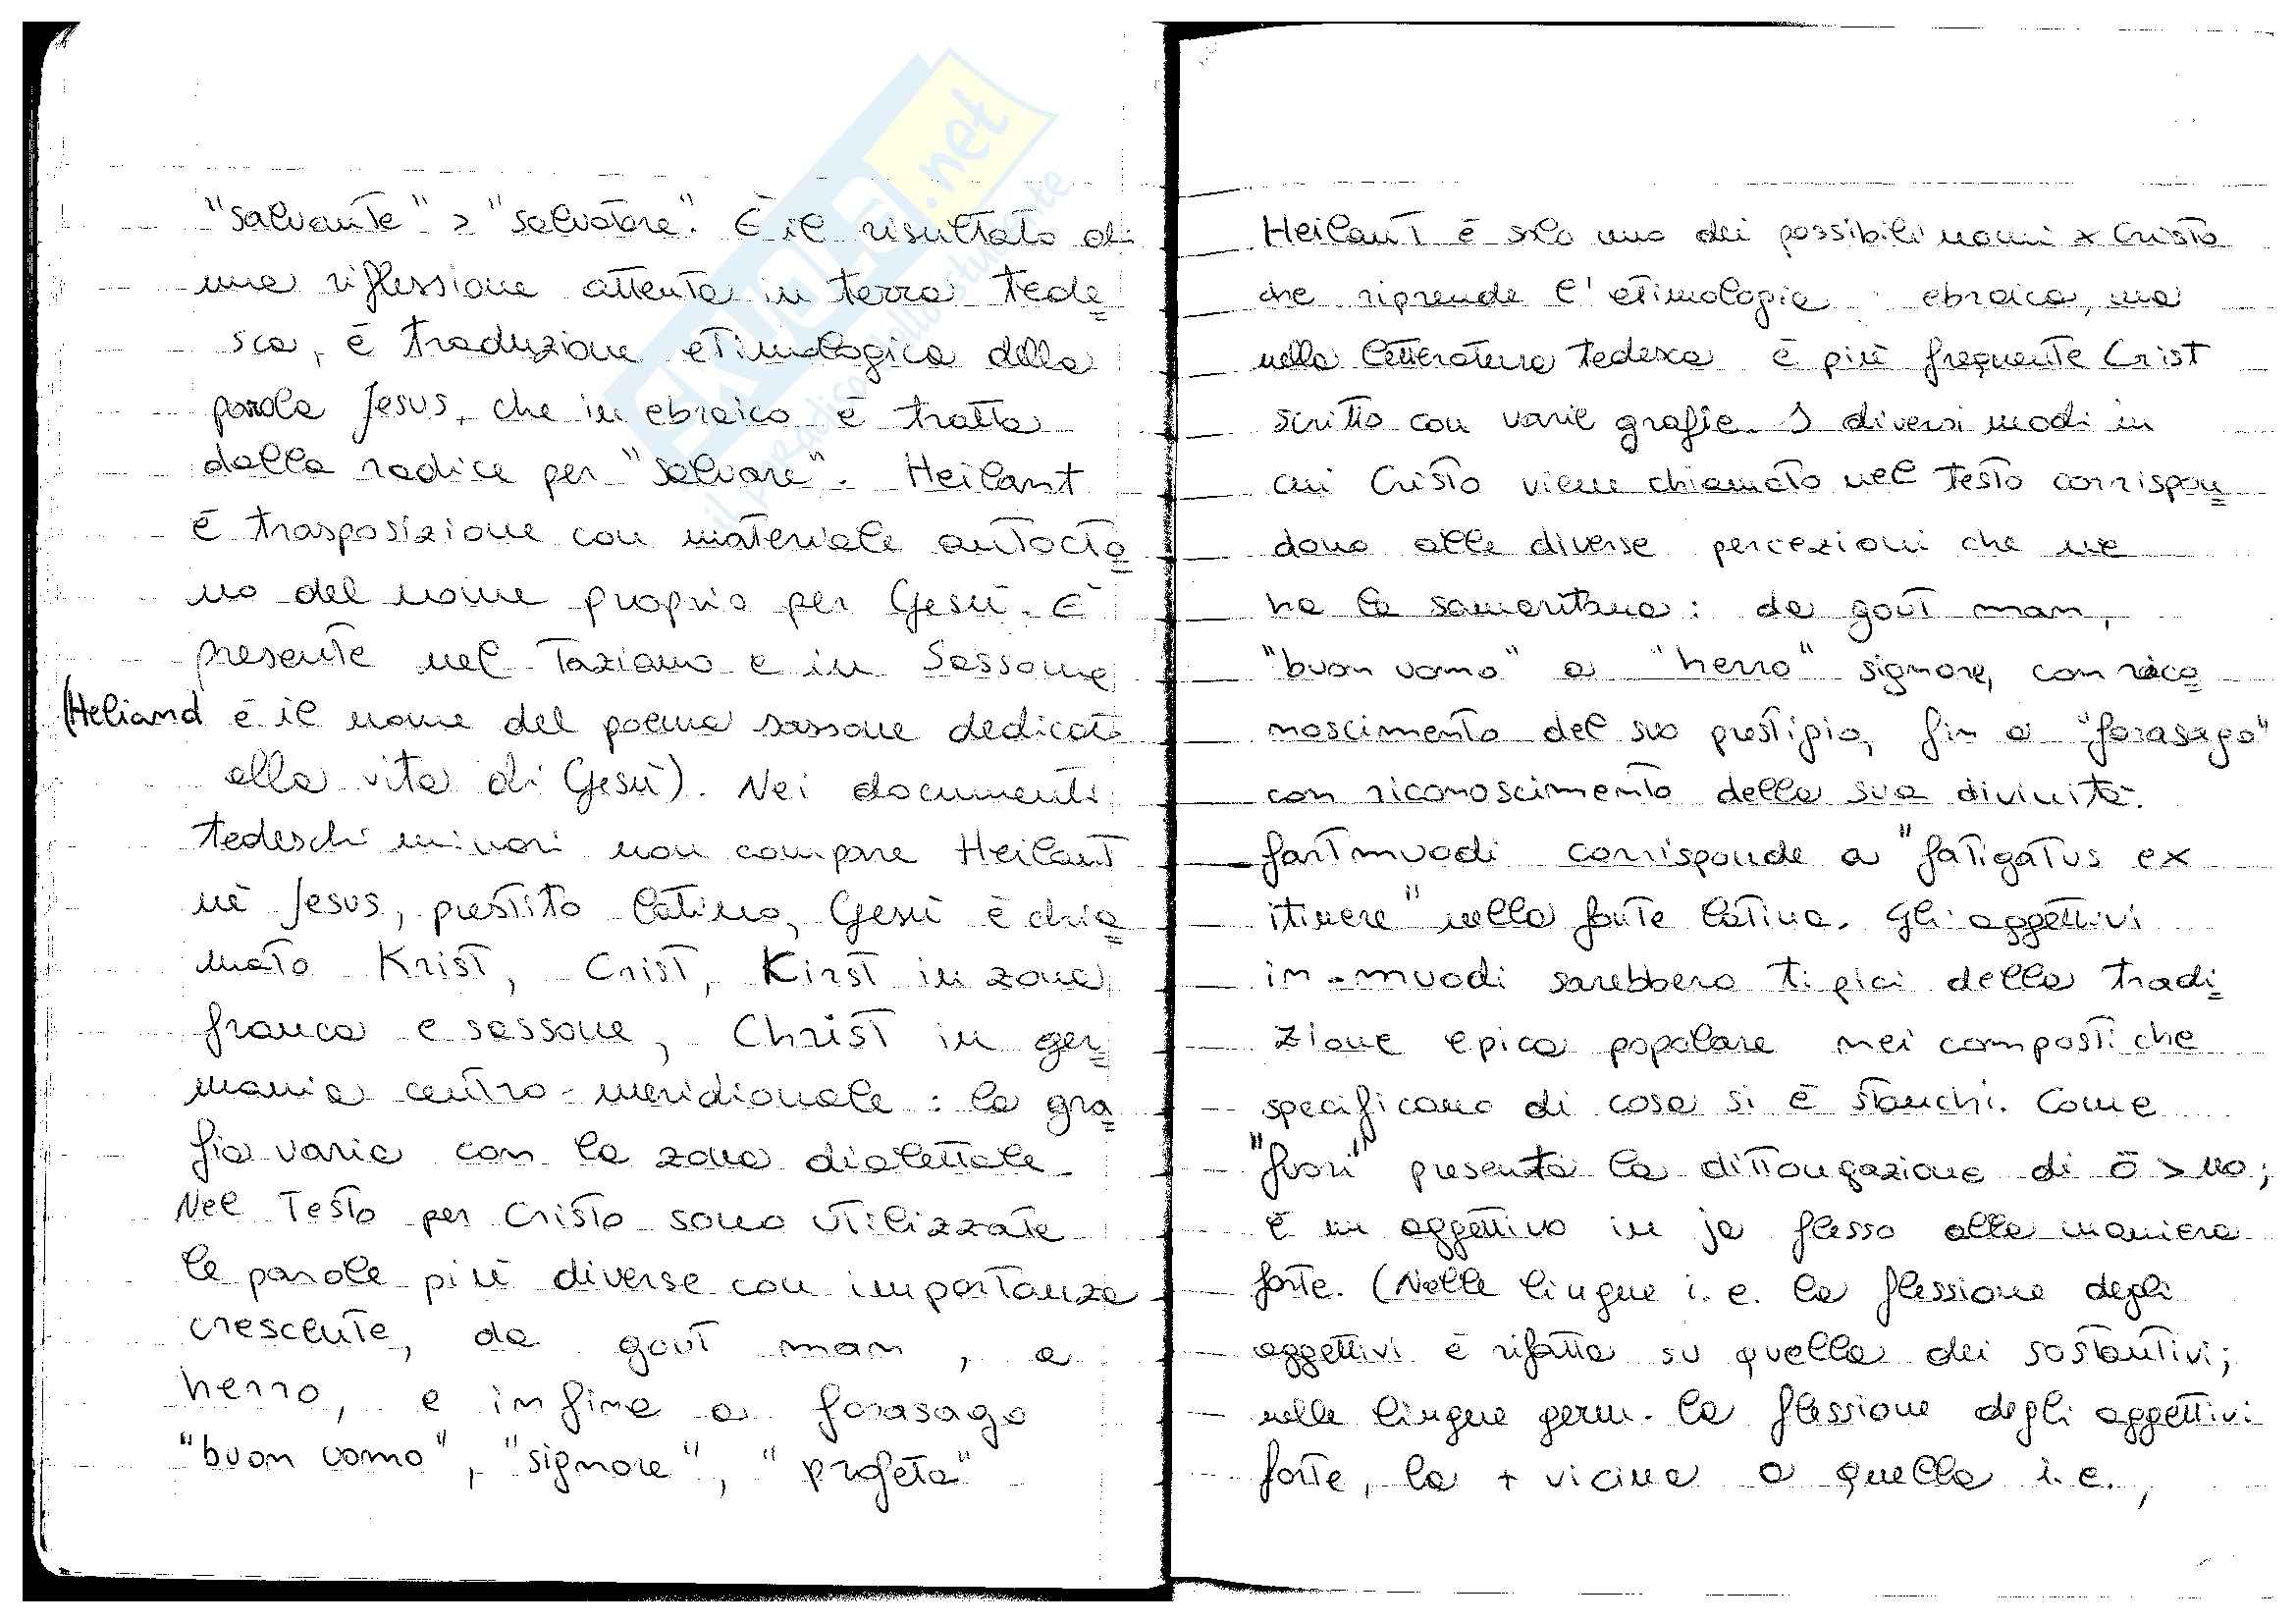 "salvante" > "salvatore". È il risultato di
una riflessione attenta in terra tede=
sca, è traduzione etimologica della
parola Jesus, che in ebraico è tratta
dalla radice per "salvare". Heilant
è trasposizione con materiale autocto=
no del nome proprio per Gesù. È
presente nel Taziano e in Sassone
(Heliand è il nome del poema sassone dedicato
alla vita di Gesù). Nei documenti
tedeschi minori non compare Heilant
nè Jesus, prestito latino, Gesù è chia=
mato Krist, Crist, Kirst in zona
franca e sassone, Christ in ger=
mania centro-meridionale : la gra=
fia varia con la zona dialettale.
Nel Testo per Cristo sono utilizzate
le parole più diverse con importanza
crescente, da gout man, a
herro, e infine a forasago
"buon uomo", "signore", "profeta"
Heilant è solo uno dei possibili nomi x Cristo
che riprende l'etimologia ebraica, ma
nella letteratura tedesca è più frequente Crist
scritto con varie grafie. I diversi modi in
cui Cristo viene chiamato nel testo corrispon=
dono alle diverse percezioni che ne
ha la samaritana: da gout man,
"buon uomo" a "herro" signore, con rico=
noscimento del suo prestigio, fin a "forasago"
con riconoscimento della sua divinità.
fartmuodi corrisponde a "fatigatus ex
itinere" nella fonte latina. Gli aggettivi
in -muodi sarebbero tipici della tradi=
zione epica popolare nei composti che
specificano di cosa si è stanchi. Come
"fuori" presenta la dittongazione di ō > uo;
è un aggettivo in ja flesso alla maniera
forte. (Nelle lingue i.e. la flessione degli
aggettivi è rifatta su quella dei sostantivi;
nelle lingue germ. la flessione degli aggettivi
forte, la + vicina a quella i.e.,
.net